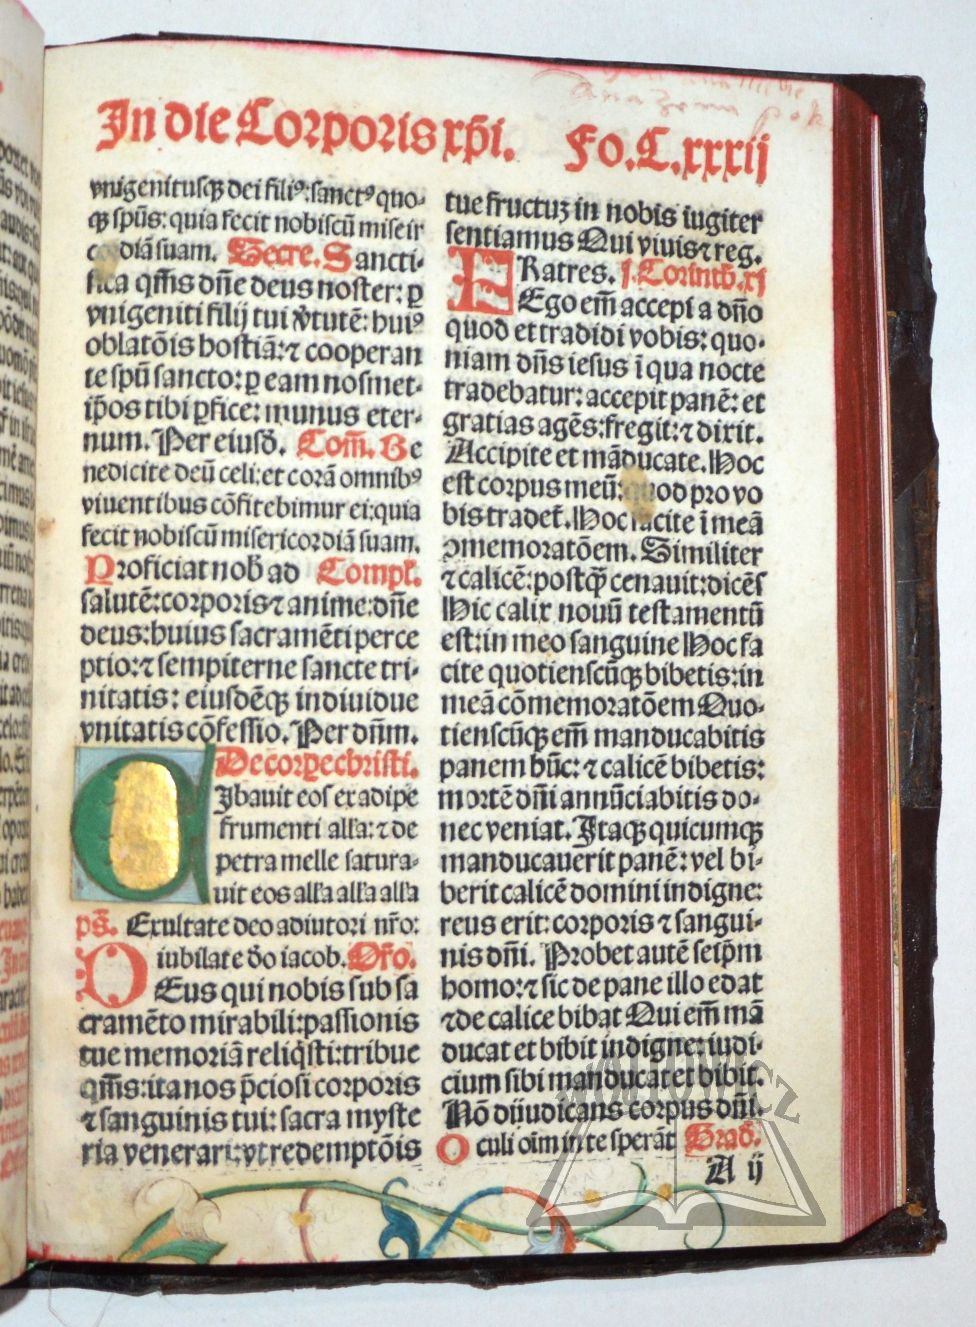 In die Corporis xp̄i. Fo.C.xxxij
vnigenitusqꝫ dei filiꝰ: sanctꝰ quo-
qꝫ spūs: quia fecit nobiscū miseir
diā suam. Secre. Sancti-
fica qm̄s dn̄e deus noster: ꝑ
vnigeniti filij tui v̄tutē: huiꝰ
oblatōis hostiā: ⁊ cooperan
te spū sancto: ꝑ eam nosmet-
ip̄os tibi ꝑfice: munus eter-
num. Per eiusd̄. Com̄. Be
nedicite deū celi: et corā omnibꝰ
viuentibus cōfitebimur ei: quia
fecit nobiscū misericordiā suam.
Proficiat nob̄ ad Compl̄.
salutē: corporis ⁊ anime: dn̄e
deus: huius sacramēti perce
ptio: ⁊ sempiterne sancte tri-
nitatis: eiusdēqꝫ indiuidue
vnitatis cōfessio. Per dn̄m.
De corꝑe christi.
Cibauit eos ex adipe
frumenti all'a: ⁊ de
petra melle satura-
uit eos all'a all'a all'a
ps̄. Exultate deo adiutori nr̄o:
iubilate d̄o iacob. Or̄o.
Deus qui nobis sub sa
cramēto mirabili: passionis
tue memoriā reliq̄sti: tribue
qm̄s: ita nos p̄ciosi corporis
⁊ sanguinis tui: sacra myste
ria venerari: vt redemptōis
tue fructuꝫ in nobis iugiter
sentiamus Qui viuis ⁊ reg.
FRatres. j. Corinth. xj
Ego em̄ accepi a dn̄o
quod et tradidi vobis: quo-
niam dn̄s iesus ī qua nocte
tradebatur: accepit panē: et
gratias agēs: fregit: ⁊ dixit.
Accipite et māducate. Hoc
est corpus meū: quod pro vo
bis tradet̄. Hoc facite ī meā
ꝯmemoratōem. Similiter
⁊ calicē: postq̄ꝫ cenauit: dicēs
Hic calix nouū testamentū
est: in meo sanguine Hoc fa
cite quotienscūqꝫ bibetis: in
meā cōmemoratōem Quo-
tienscūqꝫ em̄ manducabitis
panem hūc: ⁊ calicē bibetis:
mortē dn̄i annūciabitis do-
nec veniat. Itaqꝫ quicumqꝫ
manducauerit panē: vel bi-
berit calicē domini indigne:
reus erit: corporis ⁊ sangui-
nis dn̄i. Probet autē seip̄m
homo: ⁊ sic de pane illo edat
⁊ de calice bibat Qui em̄ mā
ducat et bibit indigne: iudi-
cium sibi manducat et bibit.
Nō dijudicans corpus dn̄i.
Oculi oīm in te sperāt Grad̄.
A ij